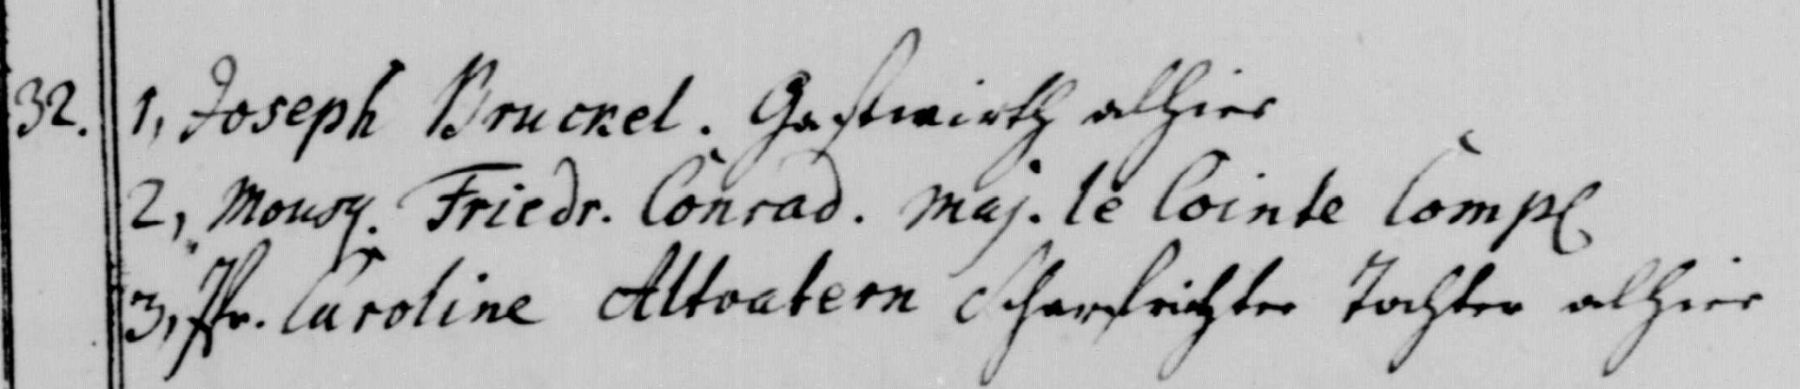 32. 1, Joseph Bruckel. Gastwirth alhier
2, Mousq. Friedr. Conrad. Maj. le Cointe Comp
3, Jfr. Caroline Altvatern Scharfrichter Tochter alhier